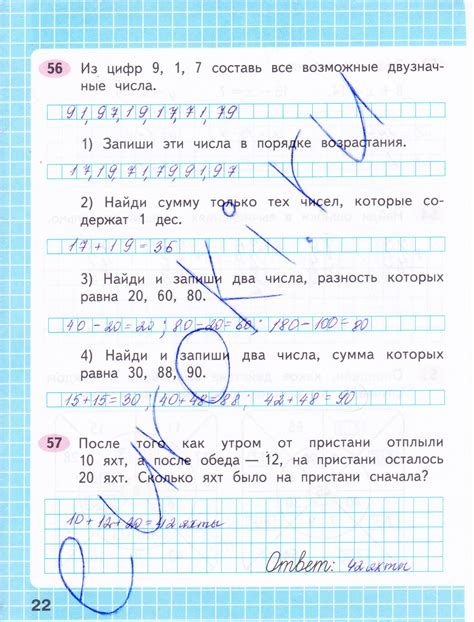 56 Из цифр 9, 1, 7 составь все возможные двузнач-
ные числа.
91, 97, 19, 17, 71, 79
1) Запиши эти числа в порядке возрастания.
17, 19, 71, 79, 91, 97
2) Найди сумму только тех чисел, которые со-
держат 1 дес.
17 + 19 = 36
3) Найди и запиши два числа, разность которых
равна 20, 60, 80.
40 - 20 = 20 ; 80 - 20 = 60 ; 180 - 100 = 80
4) Найди и запиши два числа, сумма которых
равна 30, 88, 90.
15 + 15 = 30 ; 40 + 48 = 88 ; 42 + 48 = 90
57 После того, как утром от пристани отплыли
10 яхт, а после обеда — 12, на пристани осталось
20 яхт. Сколько яхт было на пристани сначала?
10 + 12 + 20 = 42 яхты
Ответ: 42 яхты
22
euroki.ru